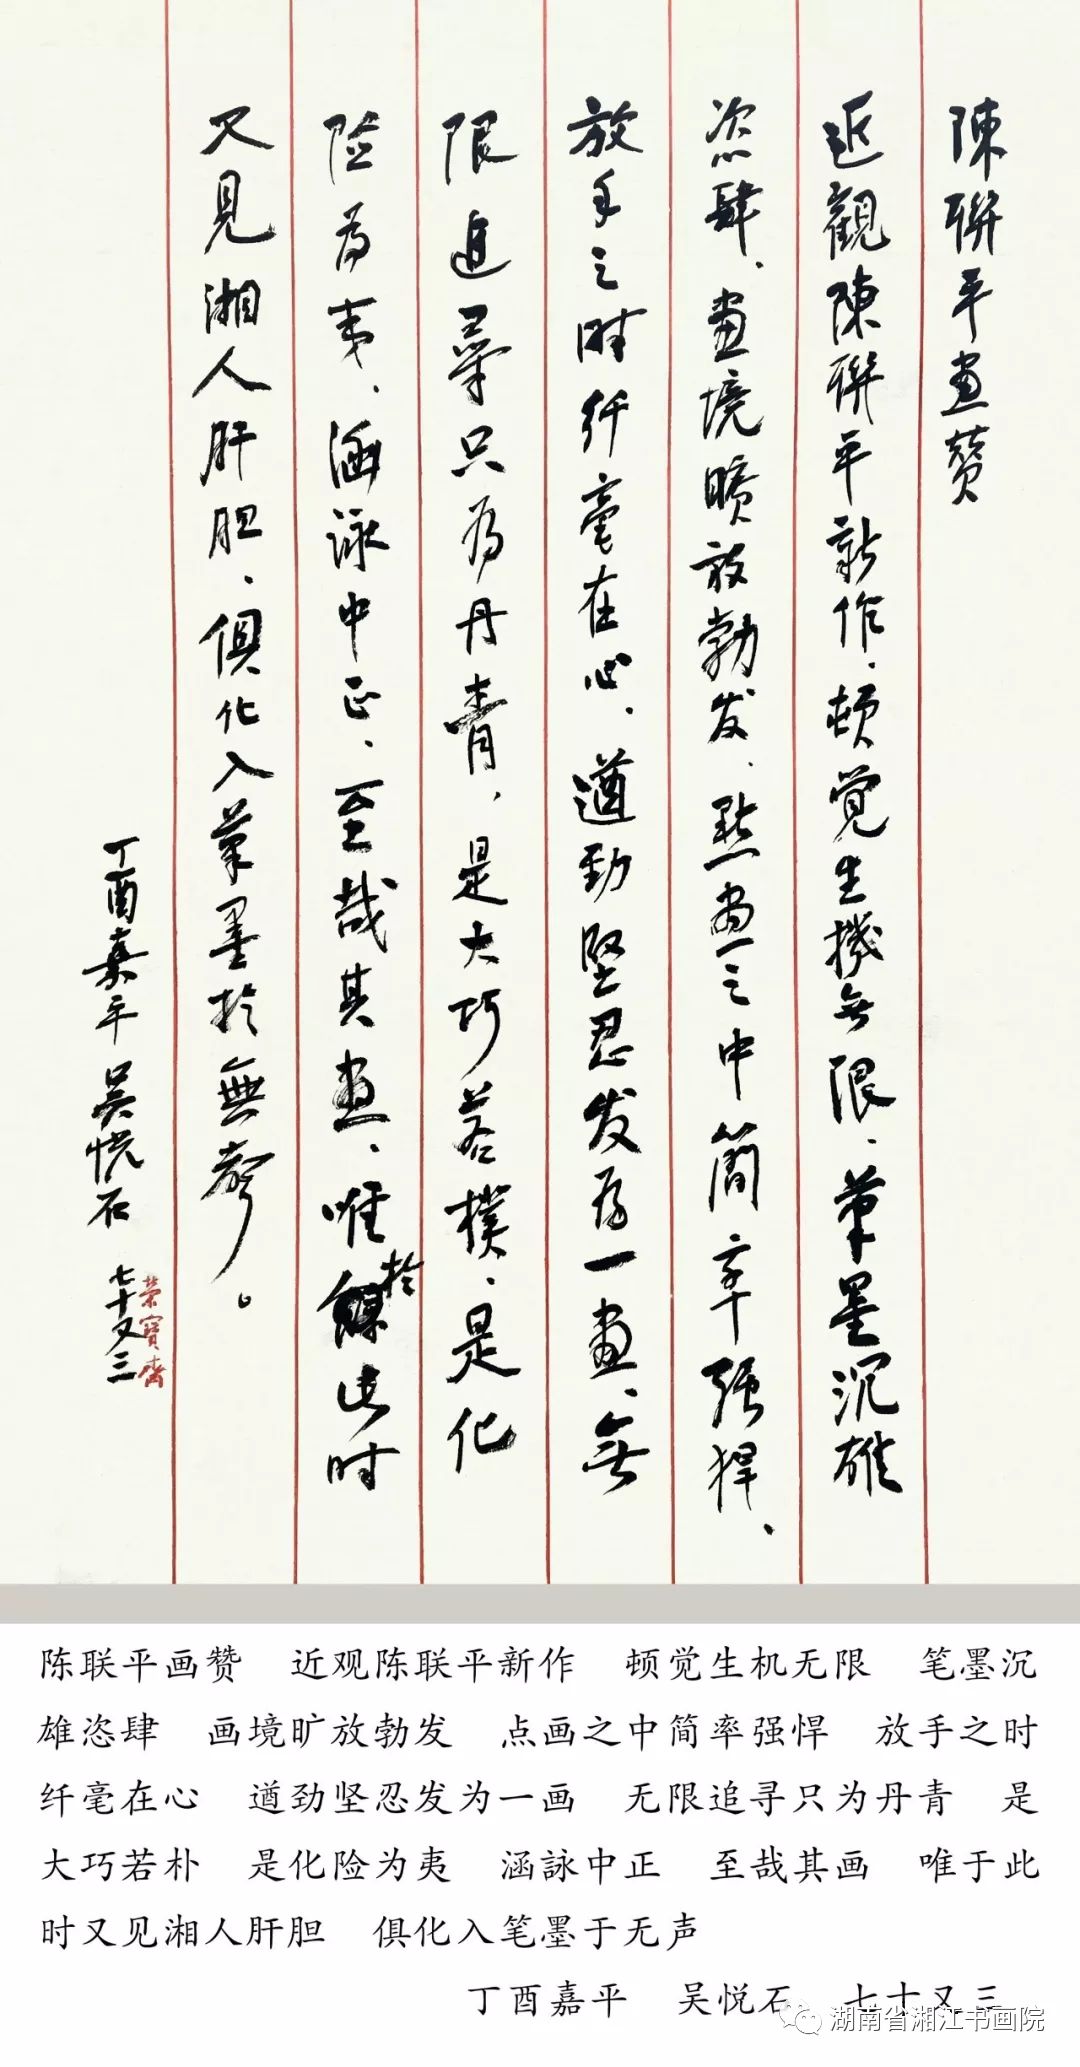 陳聯平畫贊
近觀陳聯平新作、頓觉生機无限、筆墨沉雄
恣肆、畫境曠放勃发、點畫之中簡率强悍、
放手之時纤毫在心、遒劲堅忍发为一畫、无
限追尋只为丹青，是大巧若樸、是化
险为夷、涵泳中正、至哉其畫、唯於此时
又見湘人肝胆、俱化入筆墨於無聲。
丁酉嘉平吴悦石 七十又三
荣寳齋
陈联平画赞 近观陈联平新作 顿觉生机无限 笔墨沉
雄恣肆 画境旷放勃发 点画之中简率强悍 放手之时
纤毫在心 遒劲坚忍发为一画 无限追寻只为丹青 是
大巧若朴 是化险为夷 涵詠中正 至哉其画 唯于此
时又见湘人肝胆 俱化入笔墨于无声
丁酉嘉平 吴悦石 七十又三
湖南省湘江书画院